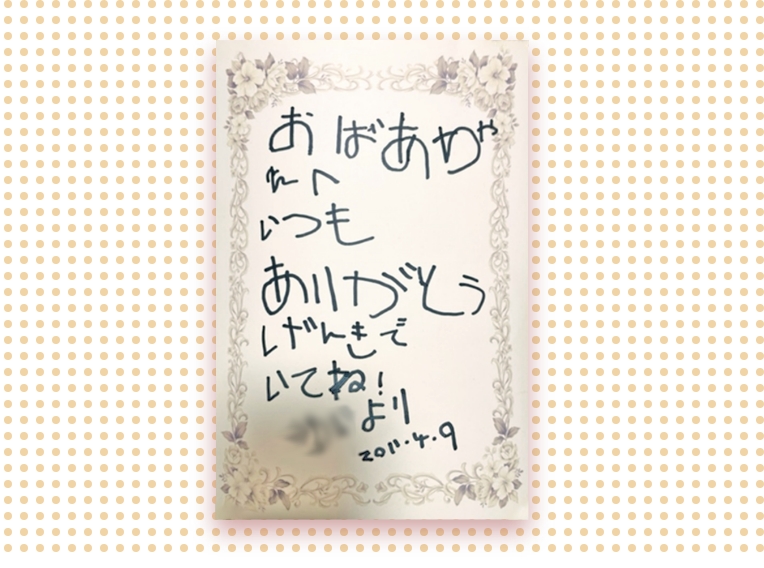 おばあちゃ
んへ
いつも
ありがとう
げんきで
いてね!
より
2011.4.9